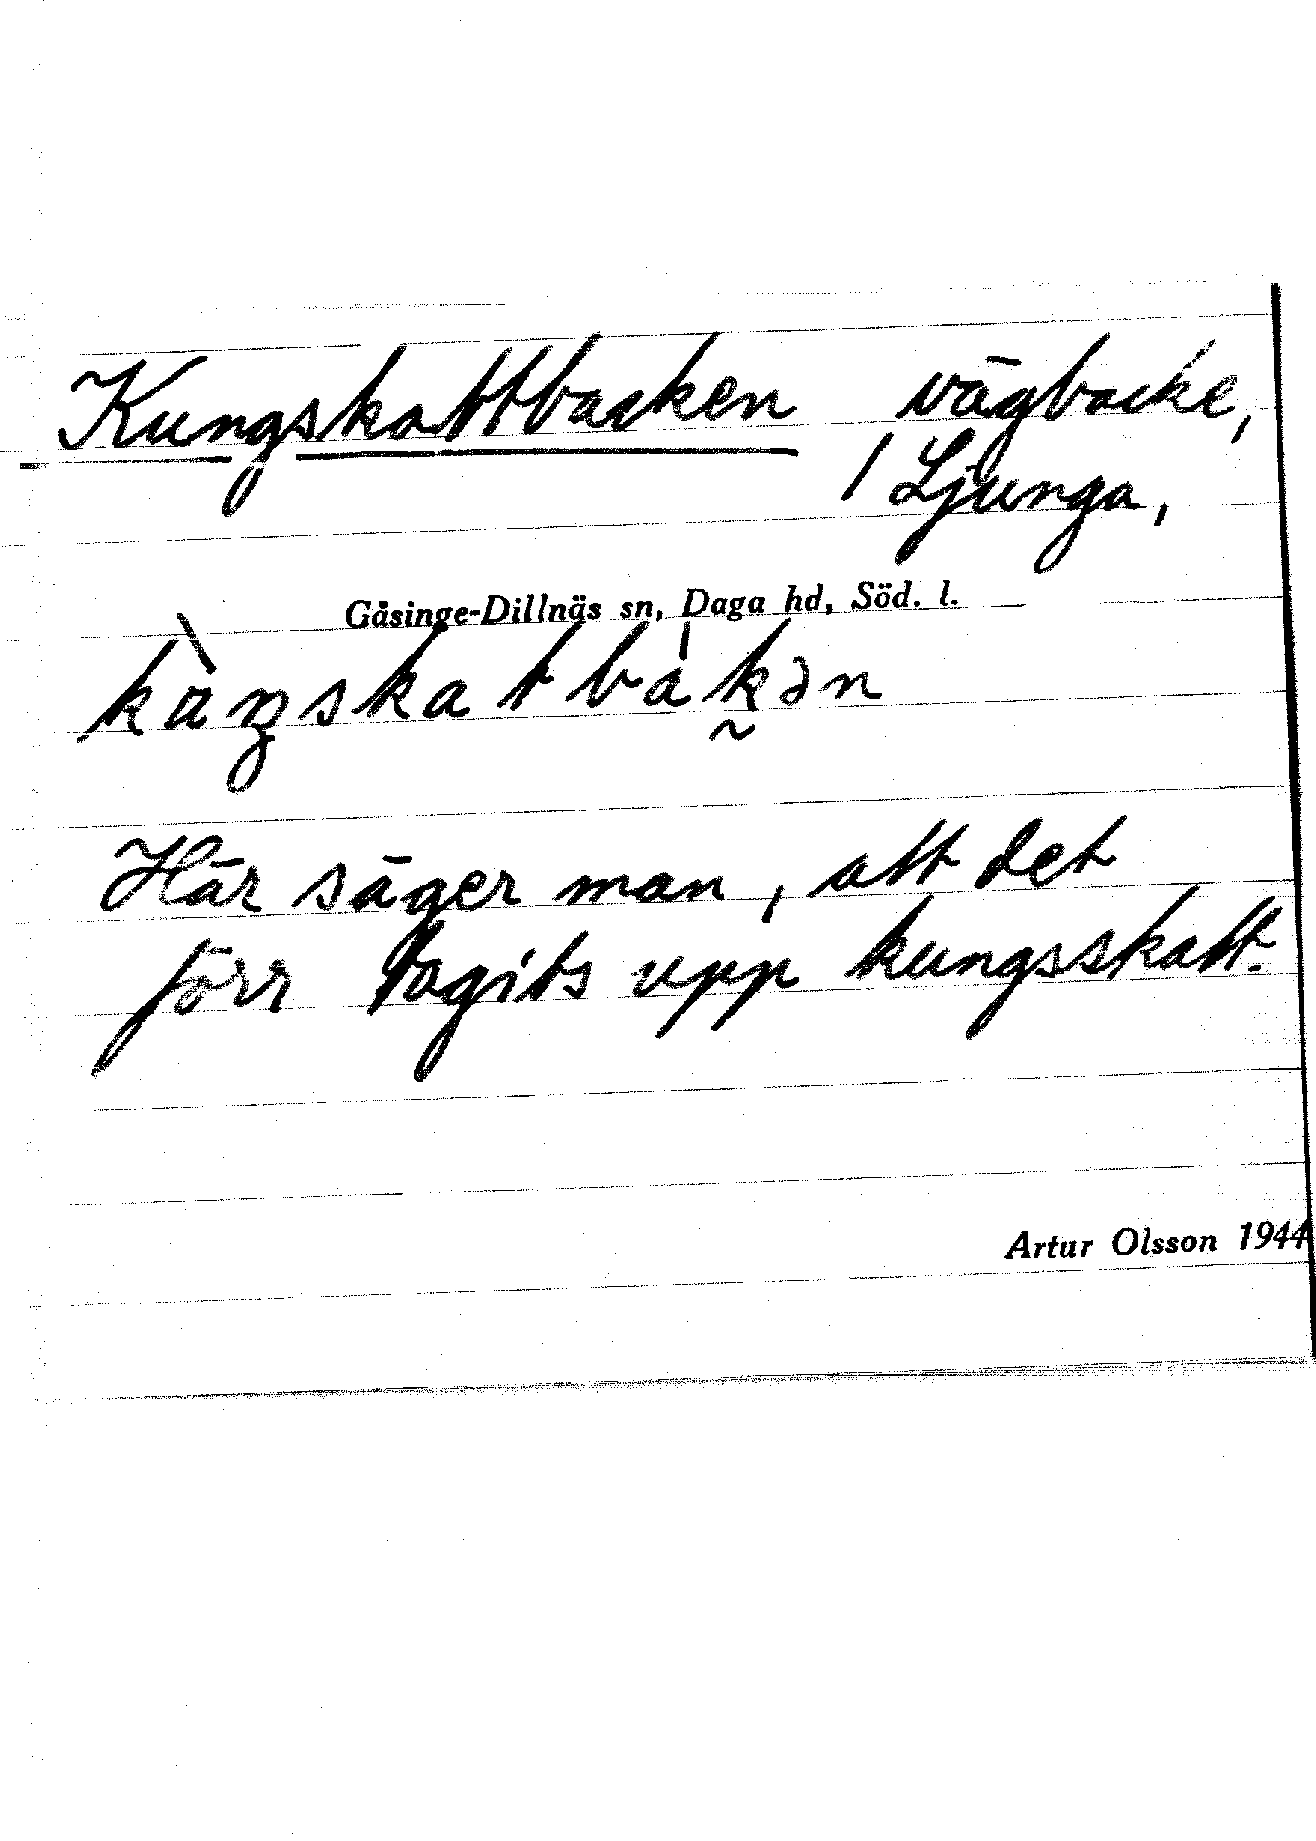 Kungskattbacken vägbacke,
1 Ljunga,
Gåsinge-Dillnäs sn, Daga hd, Söd. l.
Här säger man, att det
förr tagits upp kungsskatt.
Artur Olsson 1944